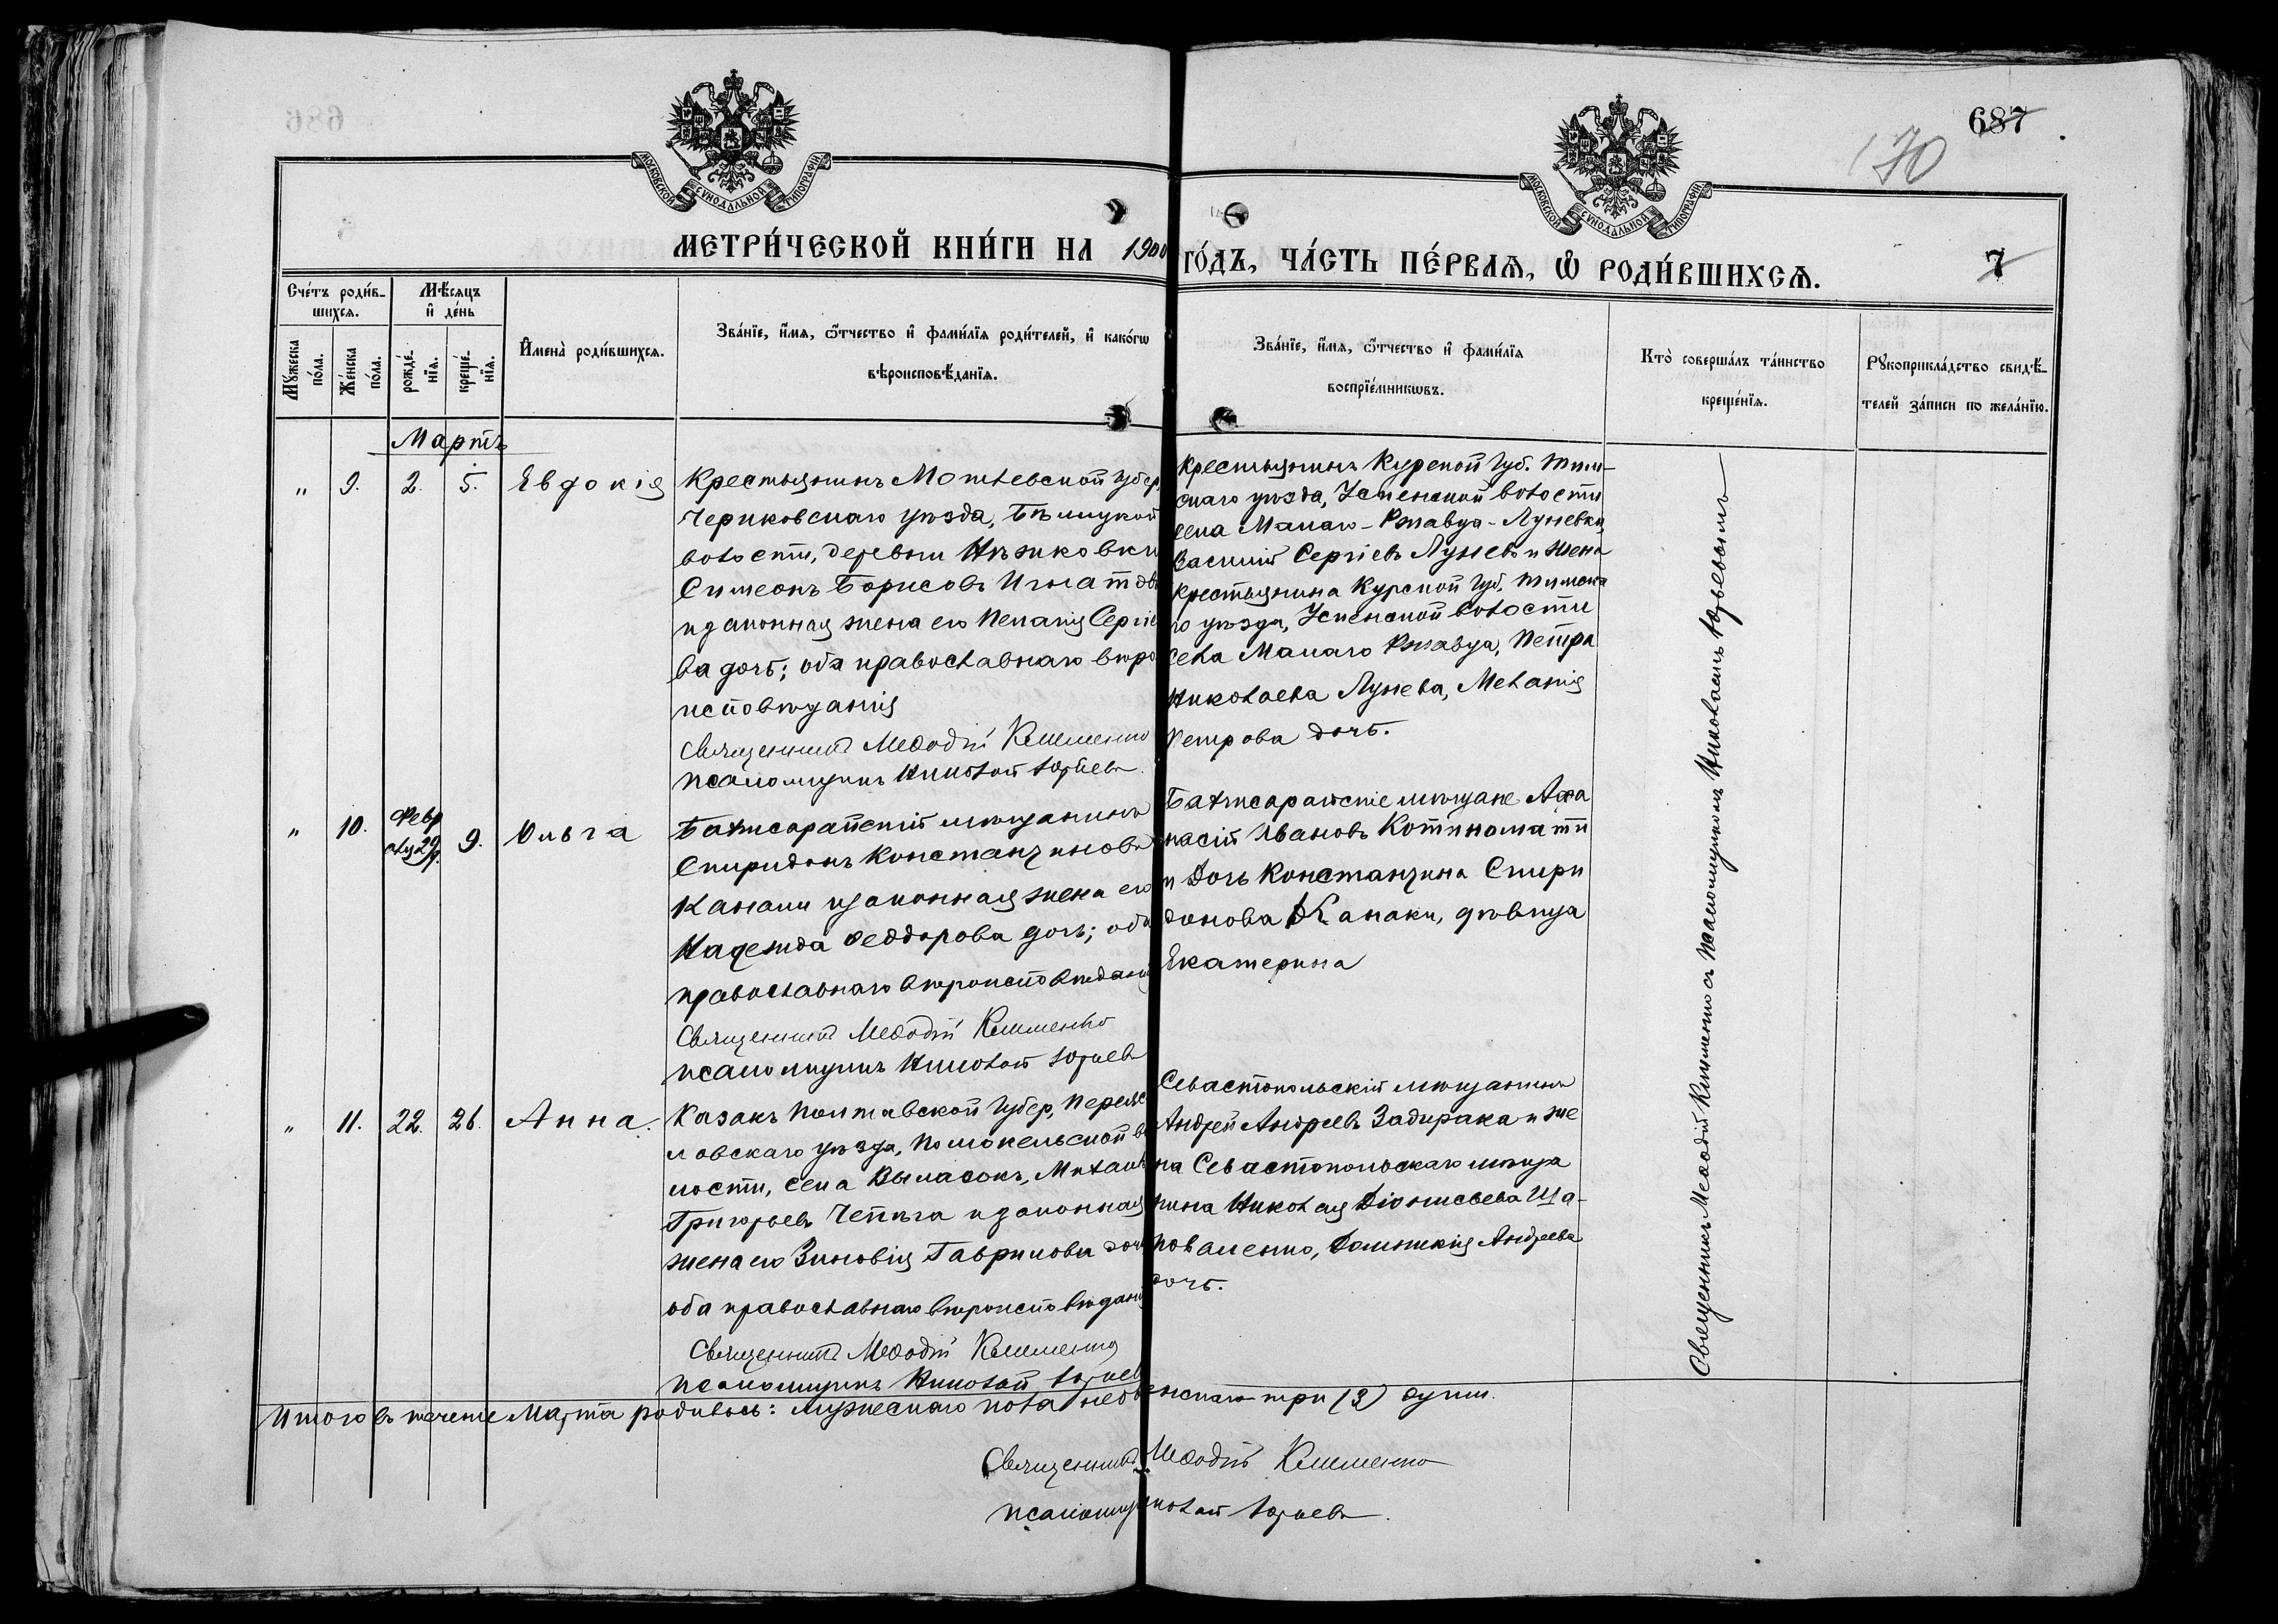 687
170
МОСКОВСКОЙ СѴНОДАЛЬНОЙ ТИПОГРАФІИ
МОСКОВСКОЙ СѴНОДАЛЬНОЙ ТИПОГРАФІИ
МЕТРИ́ЧЕСКОЙ КНИ́ГИ НА 1900 ГО́ДЪ, ЧА́СТЬ ПЕ́РВАЯ, Ѡ РОДИ́ВШИХСЯ.
7
Сче́тъ роди́в-
шихся.
Мѣ́сяцъ
и де́нь
Му́жеска
по́ла.
Же́нска
по́ла.
рожде́-
нїя.
креще́-
нїя.
И҆мена̀ роди́вшихся.
Зва́нїе, и҆́мя, ѻ҆́тчество и҆ фами́лїя роди́телей, и҆ како́гѡ
вѣроисповѣ́данїя.
Зва́нїе, и҆́мя, ѻ҆́тчество и҆ фами́лїя
воспрїе́мникѡвъ.
Кто̀ соверша́лъ та́инство
креще́нїя.
Рꙋкоприкла́дство свидѣ́-
телей за́писи по жела́нїю.
Мартъ
" 9. 2. 5. Евдокія
Крестьянинъ Могилевской губер
Чериковскаго уѣзда,
волости, деревни
Симеонъ Борисовъ Игнатовъ
и законная жена его Пелагія Сергіе
ва дочь; оба православнаго вѣро
исповѣданія
Священникъ Меѳодій Клименко
псаломщикъ Николай Юрьевъ
Крестьянинъ Курской Губ. Тим-
скаго уѣзда, Успенской волости
села Малаго-Ржавца-Луневки,
Василій Сергіевъ Луневъ и жена
крестьянина Курской Губ. Тимска
го уѣзда, Успенской волости
села Малаго Ржавца, Петра
Николаева Лунева, Меланія
Петрова дочь.
" 10. Февр
аля 29. 9. Ольга
Бахчисарайскій мѣщанинъ
Спиридонъ Константиновъ
Канаки и законная жена его
Надежда Феодорова дочь; оба
православнаго вѣроисповѣданія
Священникъ Меѳодій Клименко
псаломщикъ Николай Юрьевъ
Бахчисарайскіе мѣщане Афа
насій Ивановъ
и дочь Константина Спири
донова Канаки, дѣвица
Екатерина
" 11. 22. 26. Анна.
Казакъ Полтавской Губер, Переяс
ловскаго уѣзда, Помокельской во
лости, села Выпасокъ, Михаилъ
Григорьевъ Чепига и законная
жена его Зиновія Гаврилова дочь
оба православнаго вѣроисповѣданія
Священникъ Меѳодій Клименко
псаломщикъ Николай Юрьевъ
Севастопольскій мѣщанинъ
Андрей Андреевъ Задирака и же
на Севастопольскаго мѣща
нина Николая Діонисьева Ша-
поваленко, Домникія Андреева
дочь.
Священникъ Меѳодій Клименко съ псаломщикомъ Николаемъ Юрьевымъ
Итого въ теченіе Марта родилось: мужескаго пола женскаго три (3) души.
Священникъ Меѳодій Клименко
псаломщикъ Николай Юрьевъ.